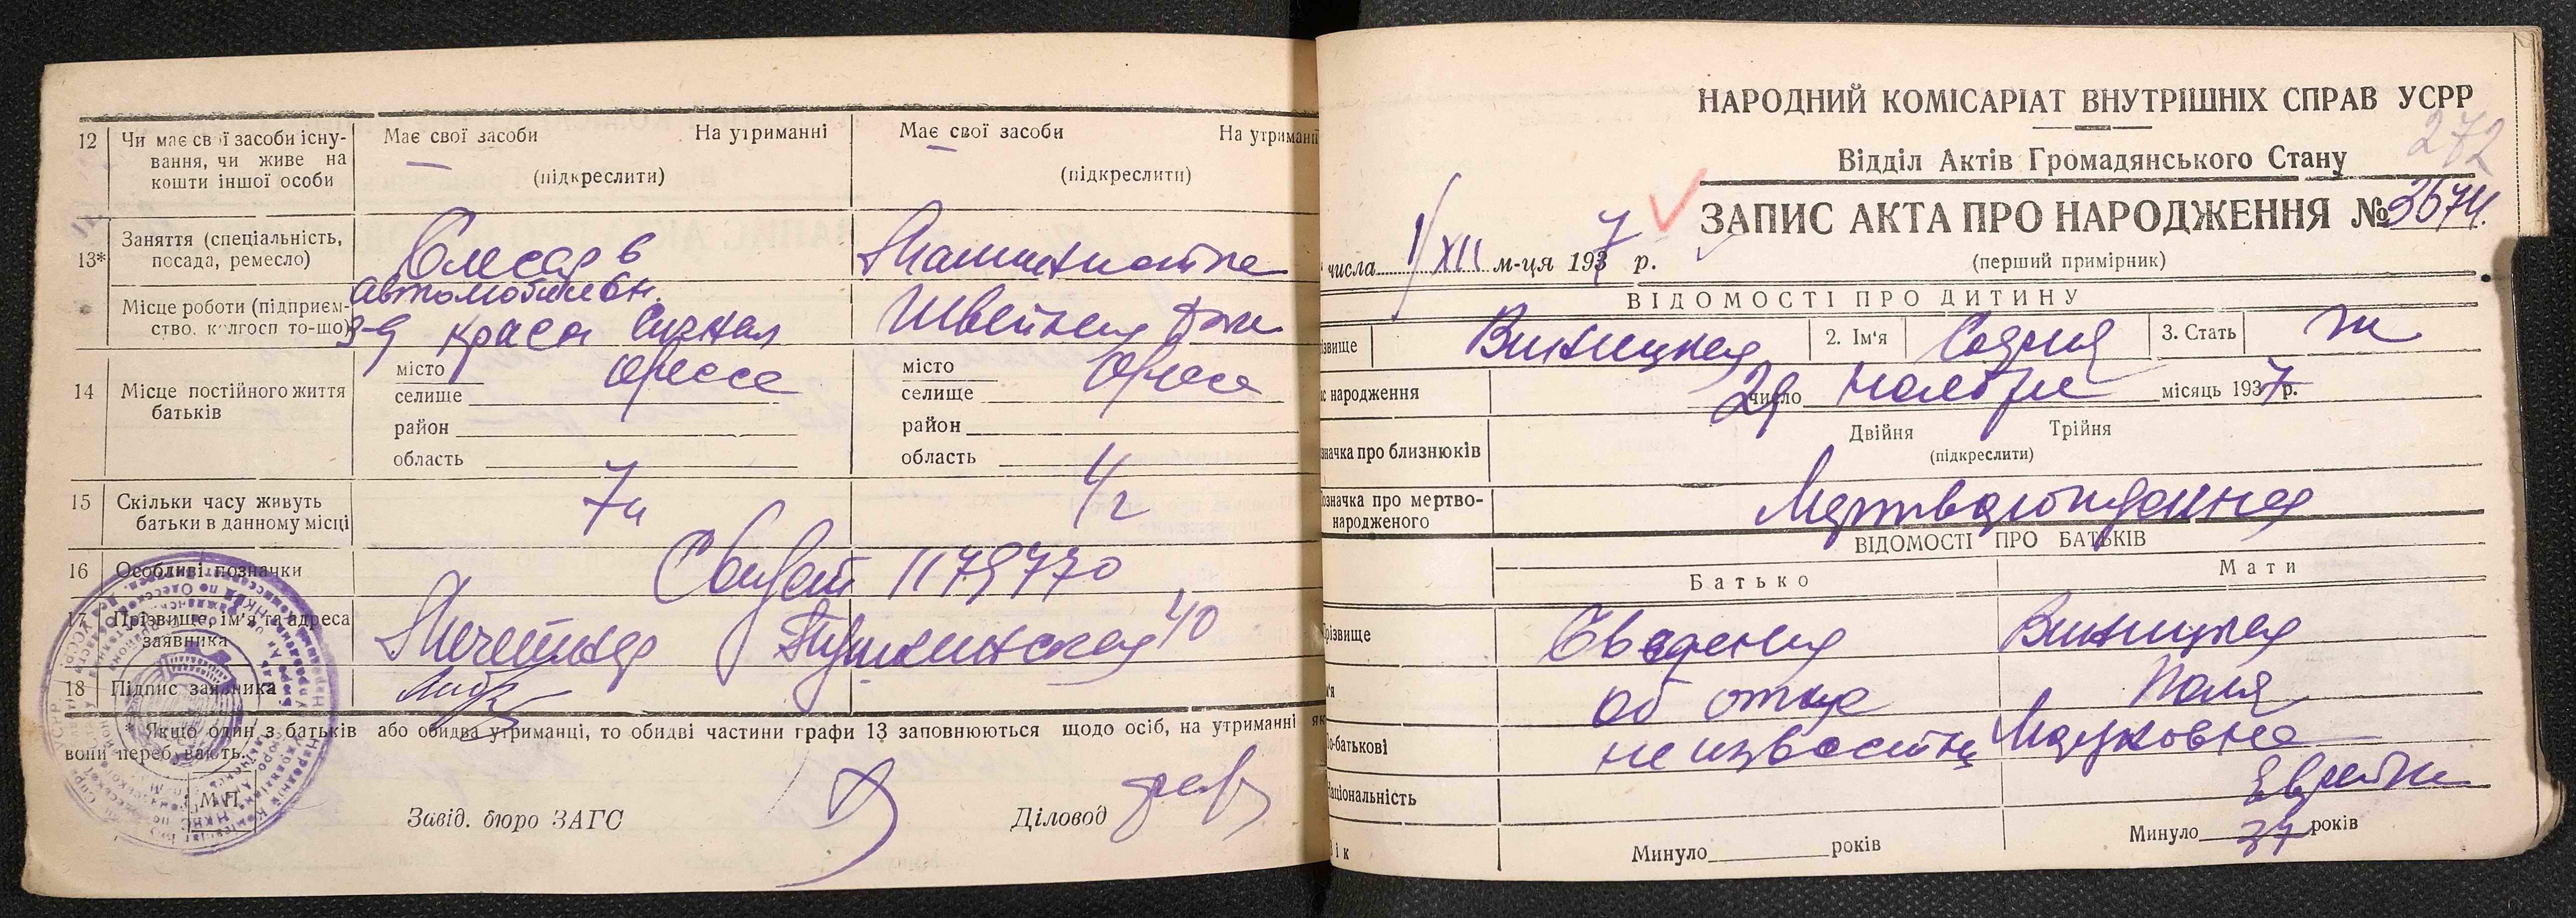 12 Чи має свої засоби існу-
вання, чи живе на
кошти іншої особи
Має свої засоби На утриманні
(підкреслити)
Має свої засоби На утриманні
(підкреслити)
13* Заняття (спеціальність,
посада, ремесло)
Слесарь
Машинистка
Місце роботи (підприєм-
ство, колгосп то-що)
автомобильн.
з-д Красн Сигнал
Швейная
14 Місце постійного життя
батьків
місто Одесса
селище
район
область
місто Одесса
селище
район
область
15 Скільки часу живуть
батьки в данному місці
16 Особливі позначки
1179770
17 Прізвище, ім'я та адреса
заявника
Пушкинская 40
18 Підпис заявника
* Якщо один з батьків або обидва утриманці, то обидві частини графи 13 заповнюються щодо осіб, на утриманні як
вони переб вають.
М.П.
Завід. бюро ЗАГС
Діловод
НАРОДНИЙ КОМІСАРІАТ ВНУТРІШНІХ СПРАВ УСРР
272
Відділ Актів Громадянського Стану
ЗАПИС АКТА ПРО НАРОДЖЕННЯ № 3674.
(перший примірник)
числа 1/XII м-ця 1937 р.
ВІДОМОСТІ ПРО ДИТИНУ
звище Винницкая 2. Ім'я 3. Стать ж
с народження 29 число Ноября місяць 1937 р.
значка про близнюків
Двійня Трійня
(підкреслити)
означка про мертво-
народженого
Мертворожденная
ВІДОМОСТІ ПРО БАТЬКІВ
Батько Мати
різвище Сведения Винницкая
м'я об отце Поля
о-батькові неизвестны
аціональність Еврейка
Вік Минуло років Минуло 37 років